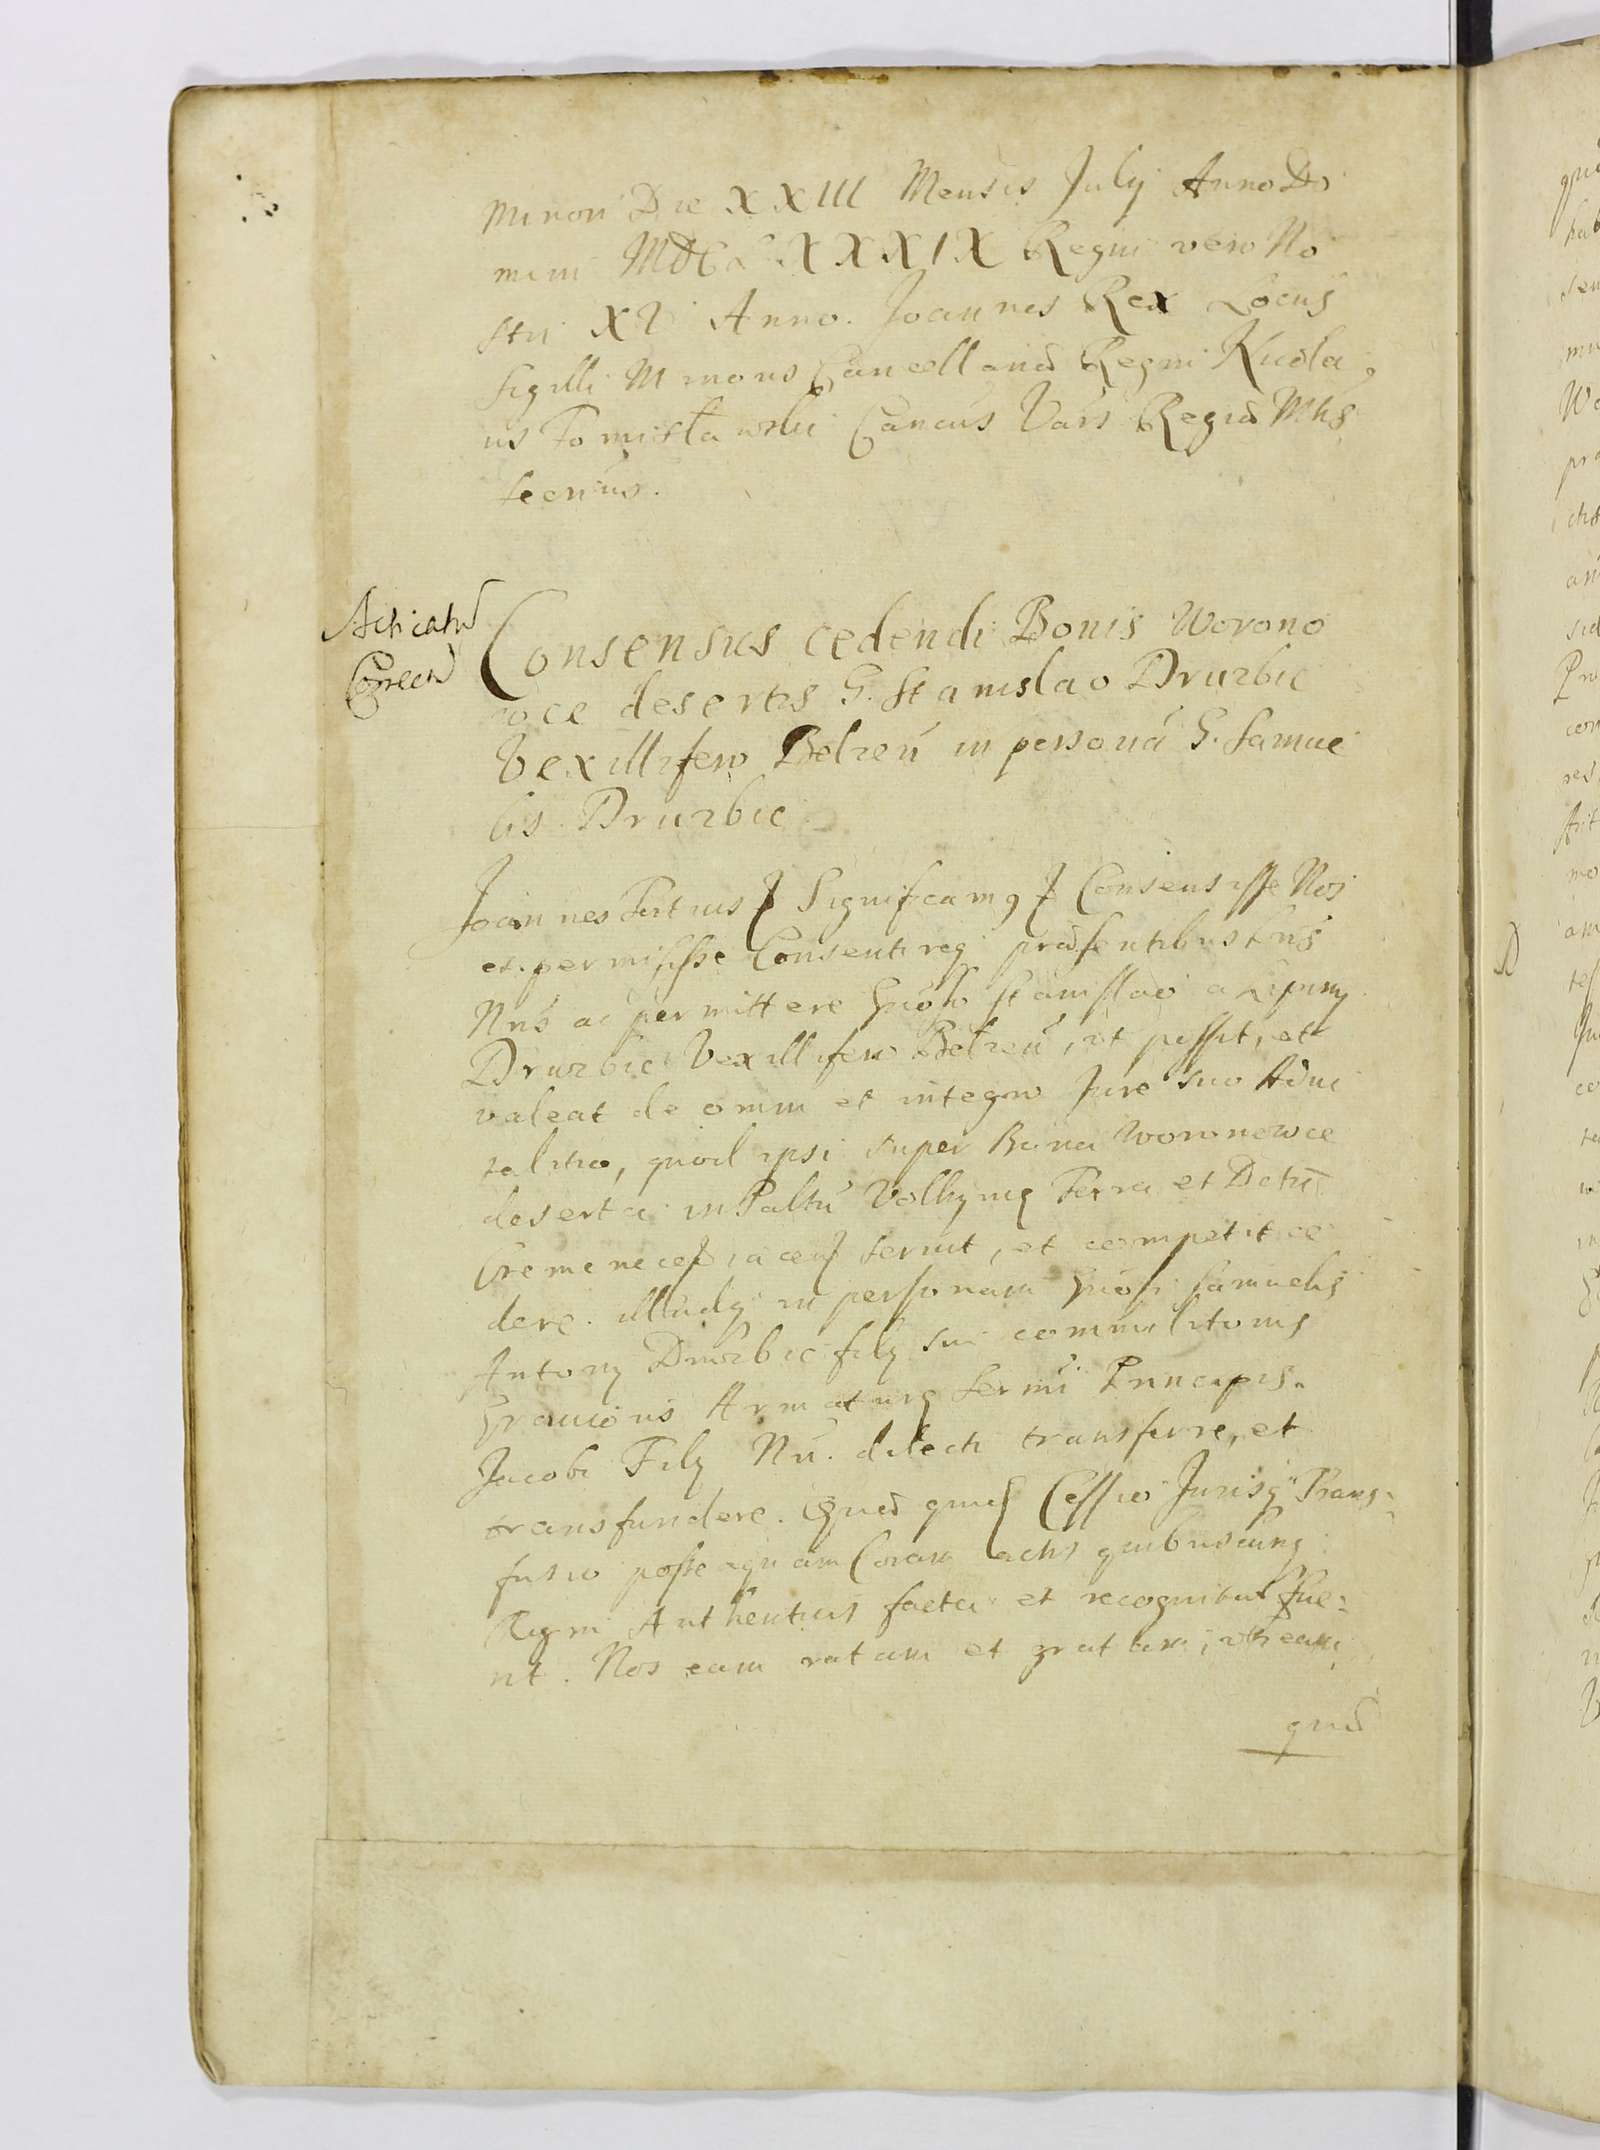 minori Die XXIII Mensis July Anno Do
mini MDCLXXXIX Regni vero No
stri XV Anno. Joannes Rex Locus
Sigilli Minoris Cancellariae Regni Nicola
us Tomisławski Cancus Vars Regiae Mtis
Secrius.
Acticatur
Correcta
Consensus cedendi Bonis Worono
wce desertis G. Stanislao Druzbic
Vexillifero Belzeñ in personã G. Samue
lis Druzbic
Joannes Tertius Significamus Consensisse Nos
et permisisse Consentireq praesentibus Lris
Nris ac permittere Gnoso Stanislao a Lipiny
Druzbic Vexillifero Belzeñ, ut possit, et
valeat de omni et integro Jure suo Advi
talitio, quod ipsi super Bona Woronowce
deserta in Paltu Volhyniae Terra et Dctu
Cremenecen jacen servit, et competit ce
dere. illudq in personam Gnosi Samuelis
Antony Druzbic fily sui commilitonis
Gravioris Armaturae Sermi Principis.
Jacobi Fily Nri. dilecti transferre, et
transfundere. Quae quidem Cessio Jurisq Trans-
fusio posteaquam Coram actis quibuscunq
Regni Authenticis facta et recognita fue-
rit. Nos eam ratam et gratam, iis eam
quae